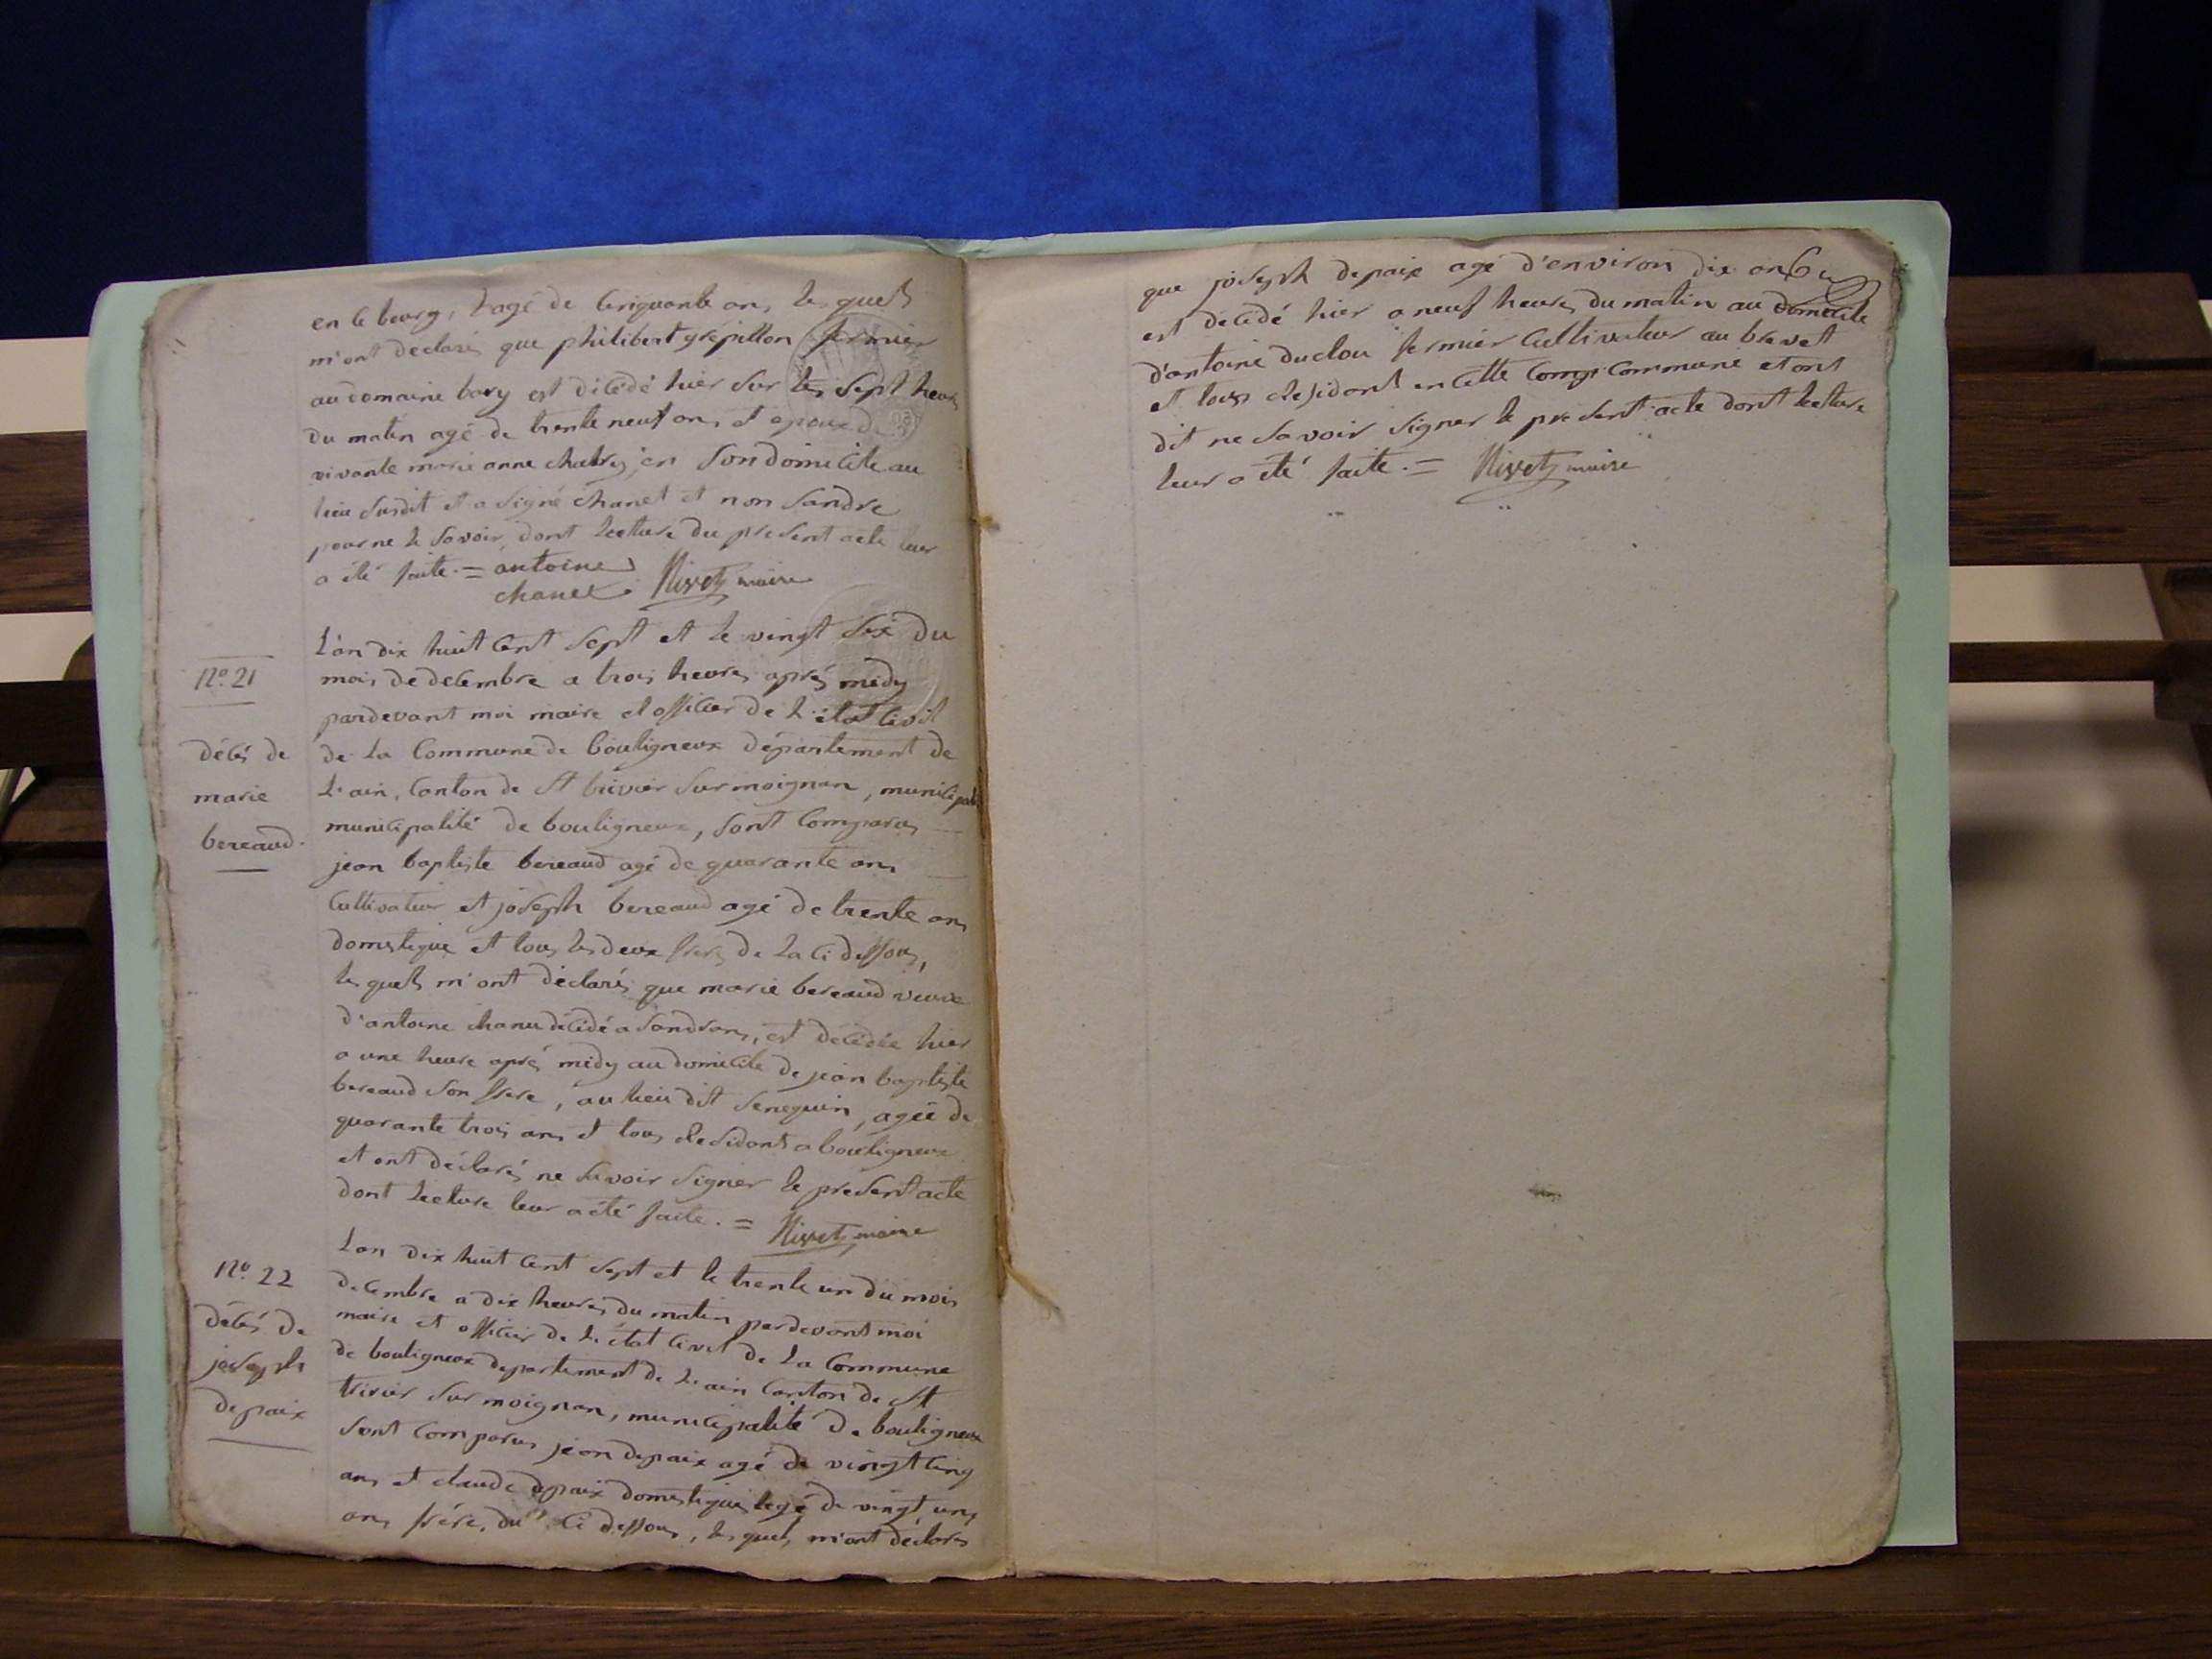 en ce bourg, & agé de cinquante ans, lesquels
m'ont declarés que philibert grépillon fermier
au domaine bary est décédé hier sur les sept heures
du matin agé de trente neuf ans et epoux de
vivante marie anne chatry, en son domicile au
lieu susdit et a signé chanel et non sandre
pour ne le savoir, dont lecture du present acte leur
a été faite. = antoine
chanel. Nivet maire
N.º 21
décés de
marie
bereaud.
L'an dix huit cent sept et le vingt six du
mois de decembre a trois heures aprés midy
pardevant moi maire et officier de l'état civil
de la commune de bouligneux département de
l'ain, canton de st trivier sur moignan, municipalité
municipalité de bouligneux, sont comparus
jean baptiste bereaud agé de quarante ans
cultivateur et joseph bereaud agé de trente ans
domestique et tous les deux freres de la ci dessous,
lesquels m'ont déclarés que marie bereaud veuve
d'antoine chanu décédé a sandrans, est décédée hier
a une heure aprés midy au domicile de jean baptiste
bereaud son frere, au lieu dit seneguin, agée de
quarante trois ans et tous residants a bouligneux
et ont déclarés ne savoir signer le present acte
dont lecture leur a été faite. = Nivet maire
N.º 22
décés de
joseph
depaix
L'an dix huit cent sept et le trente un du mois
decembre a dix heures du matin pardevant moi
maire et officier de l'état civil de la commune
de bouligneux departement de l'ain canton de st
trivier sur moignan, municipalité de bouligneux
sont comparus jean depaix agé de vingt cinq
ans et claude depaix domestiques agé de vingt un
ans fréres du ci dessous, lesquels m'ont déclarés
que joseph depaix agé d'environ dix ans
est décédé hier a neuf heures du matin au domicile
d'antoine duclou fermier cultivateur au brevet
et tous residant en cette commune et ont
dit ne savoir signer le present acte dont lecture
leur a été faite. = Nivet maire